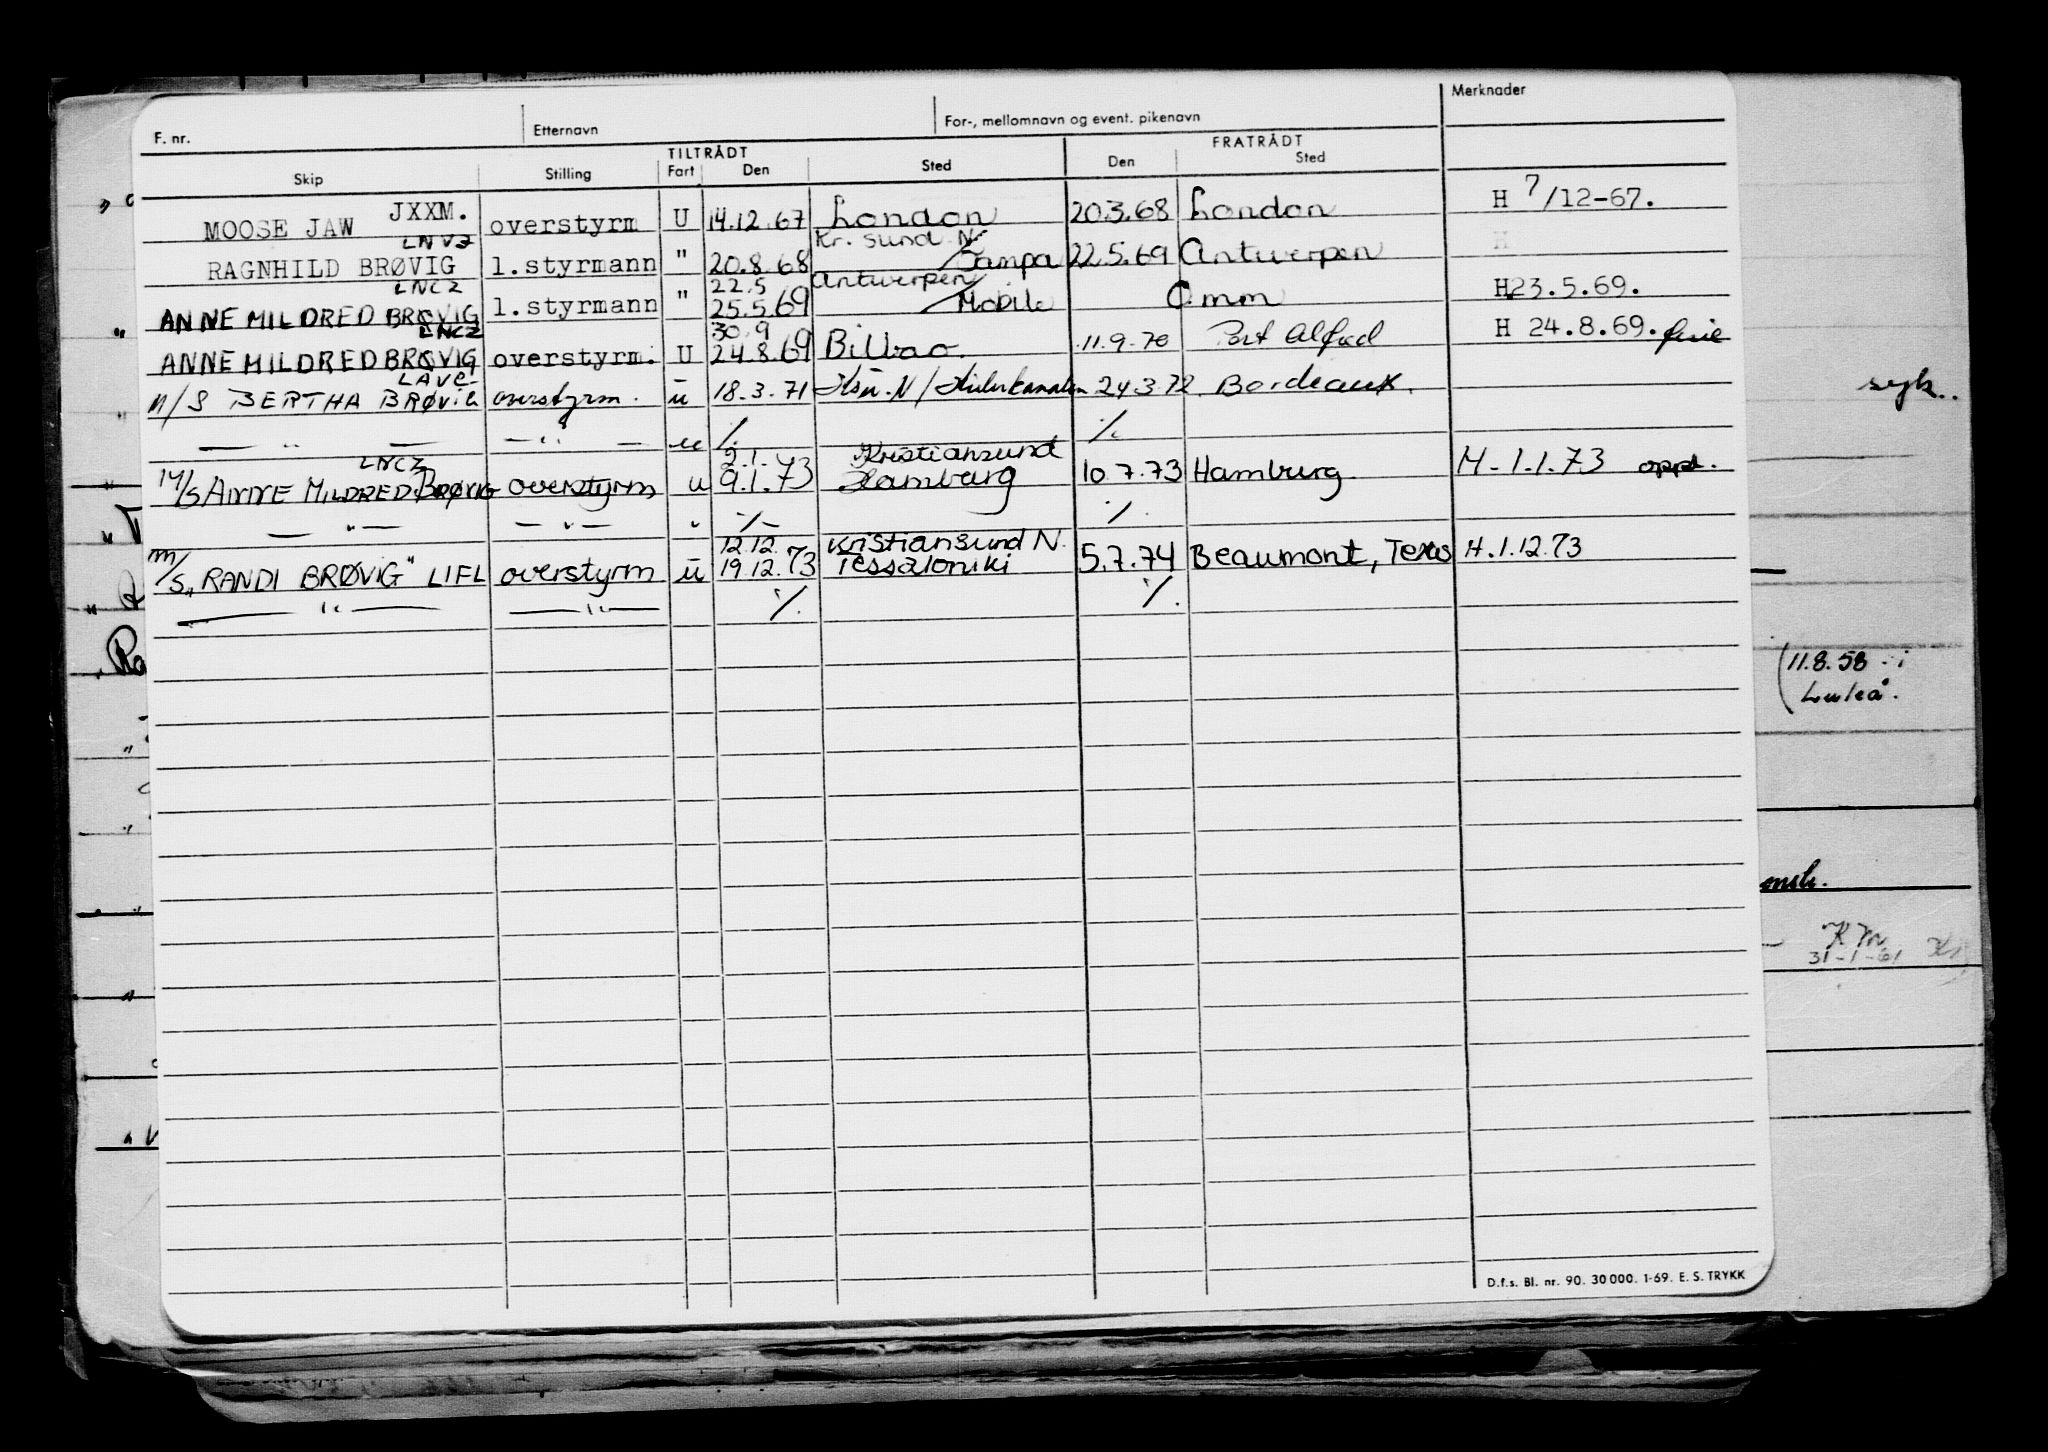 F. nr. Etternavn For-, mellomnavn og event. pikenavn Merknader
TILTRÅDT FRATRÅDT
Skip Stilling Fart Den Sted Den Sted
MOOSE JAW JXXM. overstyrm U 14.12.67 London 20.3.68 London H 7/12-67.
LNVZ Kr. sund N. H
RAGNHILD BRØVIG 1.styrmann " 20.8.68 / Tampa 22.5.69 Antwerpen
LNCZ 22.5 Antwerpen
ANNE MILDRED BRØVIG 1.styrmann " 25.5.69 / Mobile Omm H 23.5.69.
LNCZ 30.9
ANNE MILDRED BRØVIG overstyrm. U 24.8.69 Bilbao. 11.9.70 Port Alfred H 24.8.69. ferie
LAVC
M/S BERTHA BRØVIG overstyrm. u 18.3.71 Ksu. N / Kielerkanalen 24.3.72. Bordeaux.
— " — — " — u % %
LNCZ 2.1. Kristiansund
M/S ANNE MILDRED BRØVIG overstyrm u 9.1.73 Hamburg 10.7.73 Hamburg. M-1.1.73 oppt.
— " — — " — " % %
12.12. Kristiansund N.
M/S „RANDI BRØVIG" LIFL overstyrm u 19.12.73 Tessaloniki 5.7.74 Beaumont, Texas H.1.12.73
— " — — " — % %
D.f.s. Bl. nr. 90. 30 000. 1-69. E. S. TRYKK
syk..
(11.8.58 i
Luleå.
KM
31-1-61